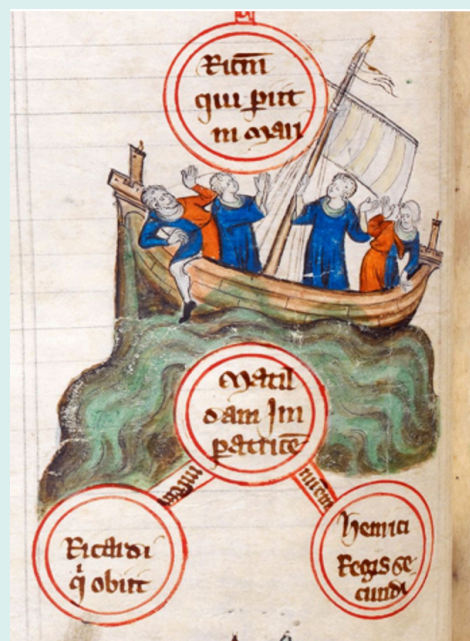 Ricm̄
qui ꝑiit
in mari
Matil
dam Im
ꝑatricē
Ricardi
qͥ obiit
Henrici
Regis se
cundi